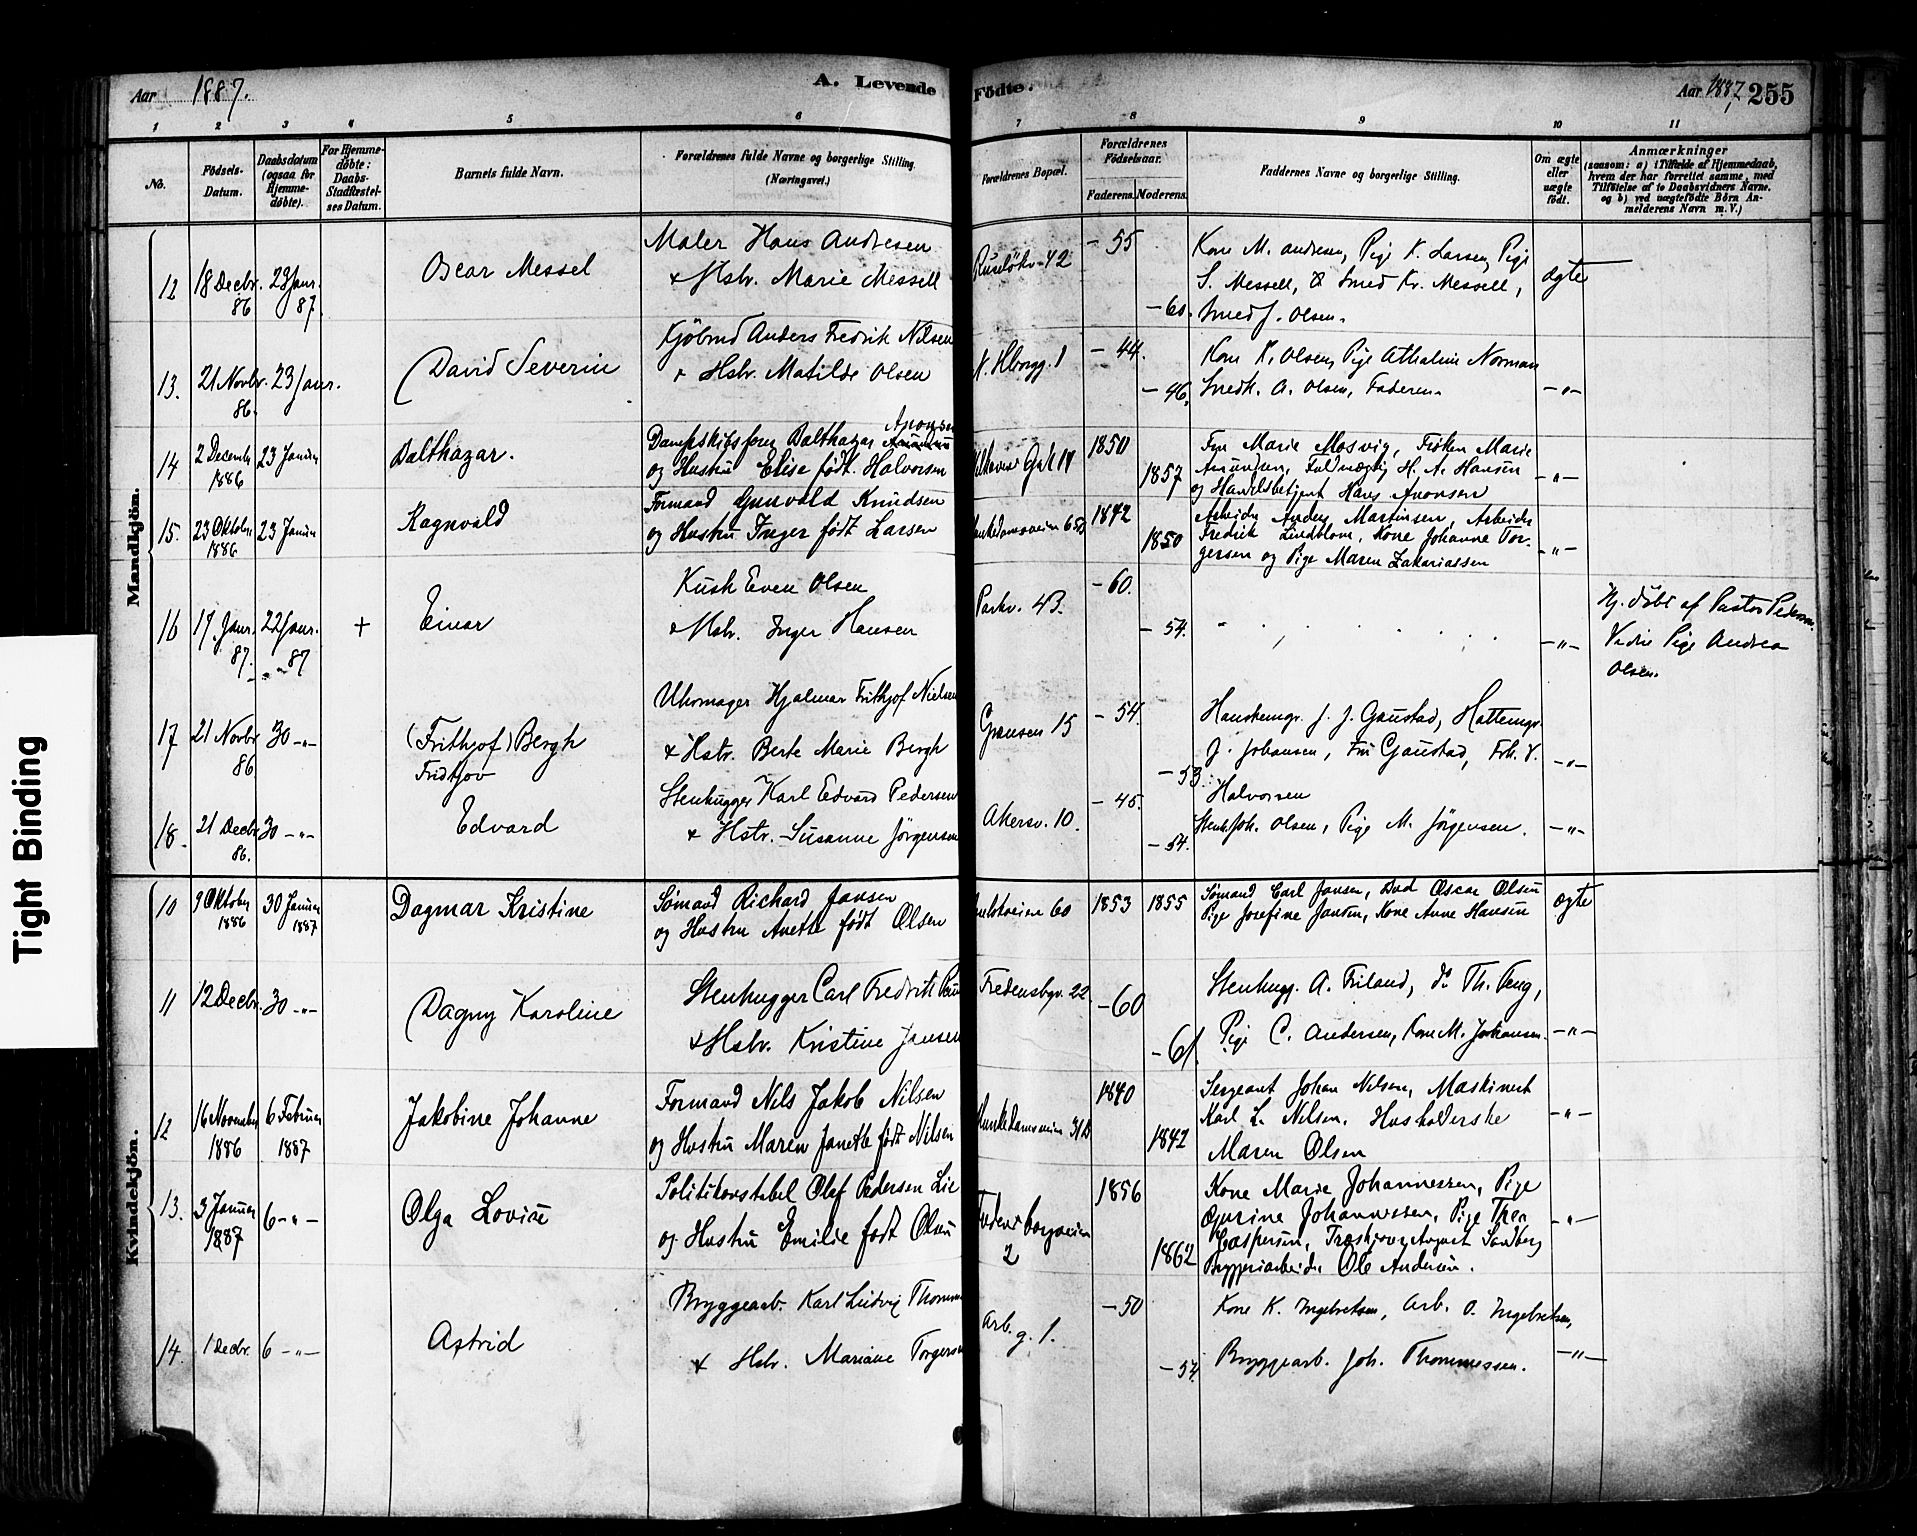 Aar 1887. A. Levende Födte. Aar 1887 255
1 2 3 4 5 6 7 8 9 10 11
No.
Födsels-Datum.
Daabsdatum (ogsaa for Hjemme-døbte).
For Hjemme-døbte: Daabs-Stadfæstel-ses Datum.
Barnets fulde Navn.
Forældrenes fulde Navne og borgerlige Stilling.
(Næringsvei.)
Forældrenes Bopæl.
Forældrenes Födselsaar.
Faderens. Moderens.
Faddernes Navne og borgerlige Stilling.
Om ægte eller uægte födt.
Anmærkninger
(saasom: a) i Tilfælde af Hjemmedaab,
hvem der har forrettet samme, med
Tilföielse af to Daabsvidners Navne,
og b) ved uægtefödte Börn An-
melderens Navn m. V.)
Mandkjön.
12 18 Decbr. 86 23 Janr. 87. Oscar Messel
Maler Hans Andresen
& Hstr. Marie Messell
Ruseløkv. 42 - 55 - 60.
Kone M. Andresen, Pige K. Larsen, Pige
S. Messell, & Smed Kr. Messell,
Smed J. Olsen.
ægte
13. 21 Novbr. 86. 23 Janr. David Severin
Kjöbmd Anders Fredrik Nilsen
& Hstr. Matilde Olsen
- 44. - 46.
Kone K. Olsen, Pige Athaline Norman
Smedk. A. Olsen, Faderen.
- " -
14 2 Decembr 1886 23 Januar Balthazar.
Dampskibsfører Balthazar Aronsen
og Hustru Elise født Halvorsen
1850 1857
Fru Marie Mosvig, Frøken Marie
Amundsen, Fuldmægtig H. A. Hansen
og Handelsbetjent Hans Aronsen
- " -
15. 23 Oktober 1886 23 Januar Ragnvald
Formand Gunvald Knudsen
og Hustru Inger født Larsen
1842 1850
Arbeider Anders Martinsen, Arbeider
Fredrik Lindblom, Kone Johanne Tor-
gersen og Pige Maren Zakariassen
- " -
16 17. Janr. 87. 22 Janr. - " - 87 + Einar
Kusk Even Olsen
& Hstr. Inger Hansen
Parkv. 4B. - 60. - 54.
- " -
Hj. döbt af Pastor Pedersen.
Vidne Pige Andrea
Olsen.
17 21 Novbr 86 30 - " - (Frithjof) Bergh
Fridtjov
Uhrmager Hjalmar Frithjof Nielsen
& Hstr. Berte Marie Bergh
Grænsen 15 - 54. - 53.
Hanskemgr. J. J. Gaustad, Hattemgr.
J. Johansen, Fru Gaustad, Frk. V.
Halvorsen
- " -
18. 21 Decbr 86. 30 - " - Edvard
Stenhugger Karl Edvard Pedersen
& Hstr. Susanne Jörgensen
Akersv. 10. - 45. - 54.
Stenh. Joh. Olsen, Pige M. Jörgensen.
- " -
Kvindekjön.
10 9 Oktober 1886 30 Januar 1887 Dagmar Kristine
Sømand Richard Jansen
og Hustru Anette født Olsen
1853 1855
Sømand Carl Jansen, Bud Oscar Olsen
Pige Josefine Jansen, Kone Anne Hansen
ægte
11 12 Decbr. 30 - " - Dagny Karoline
Stenhugger Carl Fredrik
& Hstr. Kristine Jansen
Fredensbgv. 22 - 60 - 61.
Stenhugg. A. Friland, do Th. Teng,
Pige C. Andersen, Kone M. Johansen.
- " -
12 16 November 1886 6 Februar 1887 Jakobine Johanne
Formand Nils Jakob Nilsen
og Hustru Maren Janette født Nilsen
Munkedamsveien 31B 1840 1842
Sergeant Johan Nilsen, Maskinist
Karl L. Nilsen, Husholderske
Maren Olsen
- " -
13. 3 Januar 1887 6 - " - Olga Lovise
Politikonstabel Olaf Pedersen Lie
og Hustru Emilie født Olsen
Fredensborgveien
2
1856 1862
Kone Marie Johannessen, Pige
Gurine Johannessen, Pige Thea
Caspersen, August Sandberg
Bryggeriarbeider Ole Andersen.
- " -
14. 1 Decbr. 6 - " - Astrid
Bryggearb. Karl Ludvig
& Hstr. Mariane Torgersen
Arb. g. 1. - 50 - 54.
Kone K. Ingebretsen, Arb. O. Ingebretsen,
Bryggearb. Joh. Thommessen.
- " -
Tight Binding